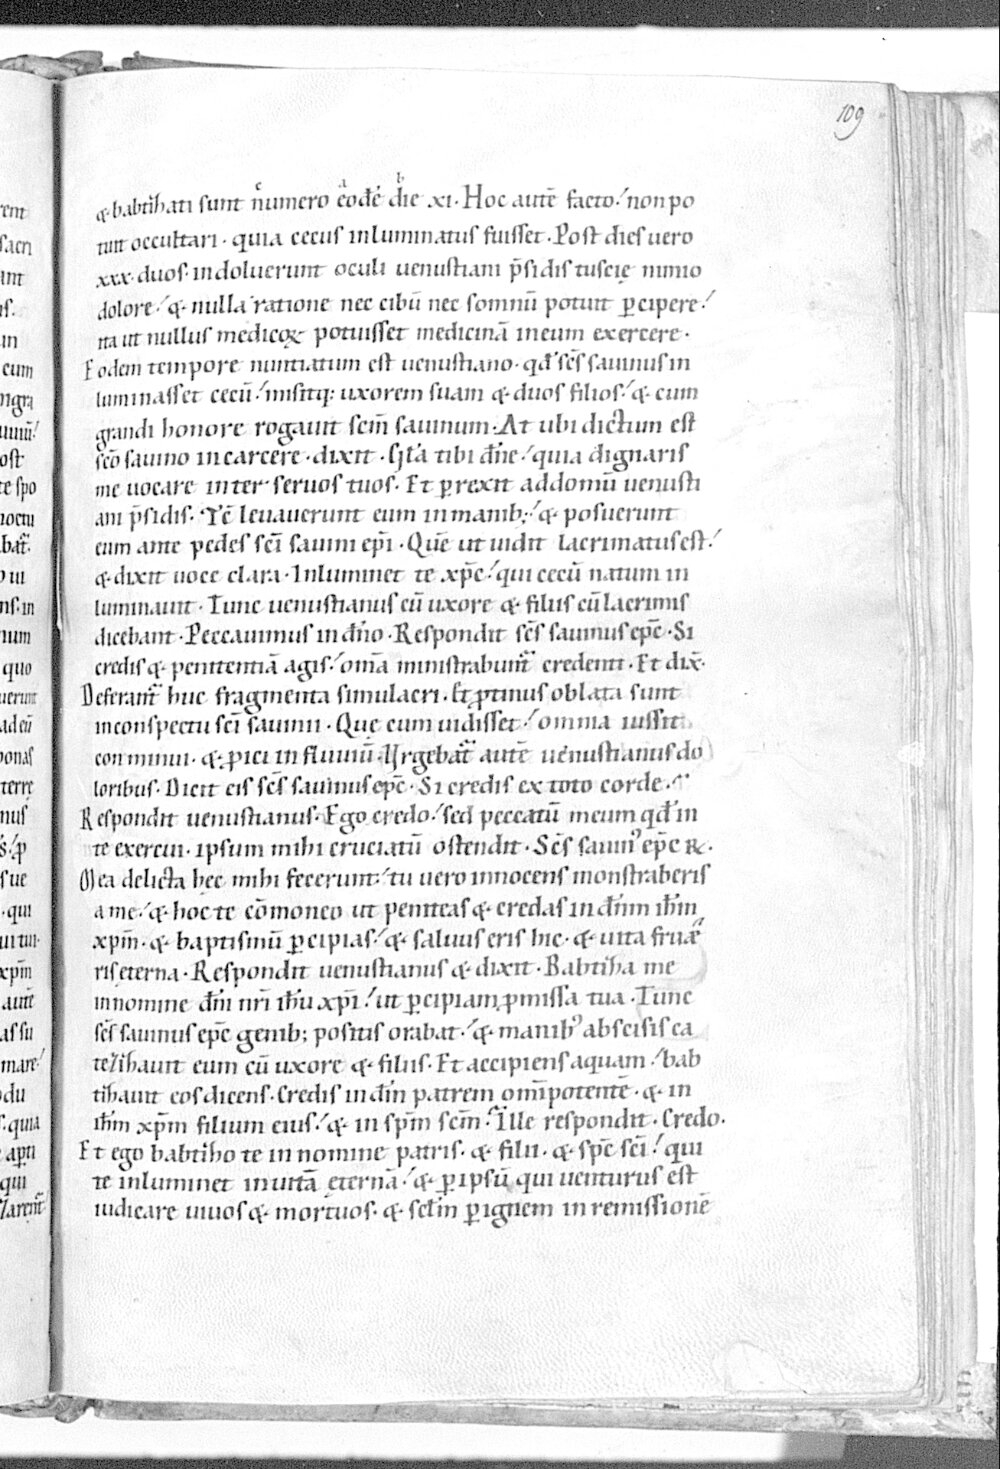 109
& babtizati sunt numero eodē die xi. Hoc autē facto / non po
tuit occultari. quia cecus inluminatus fuisset. Post dies uero
xxx. duos. indoluerunt oculi uenustiani p̄sidis tuscię nimio
dolore / & nulla ratione nec cibū nec somnū potuit p̱cipere /
ita ut nullus medicoꝝ potuisset medicinā in eum exercere.
Eodem tempore nuntiatum est uenustiano. qđ sc̄s sauinus in
luminasset cecū / misitq: uxorem suam & duos filios / & cum
grandi honore rogauit scm̄ sauinum. At ubi dictum est
sc̄o sauino in carcere. dixit. Gl̄a tibi dn̄e / quia dignaris
me uocare inter seruos tuos. Et p̱rexit ad domū uenusti
ani p̄sidis. Tc̄ leuauerunt eum in manib; / & posuerunt
eum ante pedes sc̄i sauini ep̄i. Quē ut uidit lacrimatus est /
& dixit uoce clara. Inluminet te xp̄c / qui cecū natum in
luminauit. Tunc uenustianus cū uxore & filiis cū lacrimis
dicebant. Peccauimus in dn̄o. Respondit sc̄s sauinus ep̄c. Si
credis & penitentiā agis / om̄a ministrabunt᷑ credenti. Et dix̄.
Deferant᷑ huc fragmenta simulacri. Et ꝓtinus oblata sunt
in conspectu sc̄i sauini. Quę cum uidisset / omnia iussit
conminui. & ꝓici in fluuiū. Urgebat᷑ autē uenustianus do
loribus. Dicit eis sc̄s sauinus ep̄c. Si credis ex toto corde.
Respondit uenustianus. Ego credo / sed peccatū meum qđ in
te exercui. ipsum mihi cruciatū ostendit. Sc̄s sauin᾽ ep̄c R.
Mea delicta hęc mihi fecerunt / tu uero innocens monstraberis
a me / & hoc te cōmoneo ut peniteas & credas in dn̄m ih̄m
xpm̄. & baptismū p̱cipias / & saluus eris hic. & uita fruæ
ris eterna. Respondit uenustianus & dixit. Babtiza me
in nomine dn̄i nr̄i ih̄u xp̄i / ut p̱cipiam ꝓmissa tua. Tunc
sc̄s sauinus ep̄c genib; positis orabat / & manib᾽ abscisis ca
tezizauit eum cū uxore & filiis. Et accipiens aquam / bab
tizauit eos dicens. Credis in dm̄ patrem omīpotentē. & in
ih̄m xpm̄ filium eius / & in spm̄ scm̄. Ille respondit. Credo.
Et ego babtizo te in nomine patris. & filii. & sp̄c sc̄i / qui
te inluminet in uitā eternā / & p̱ ipsū qui uenturus est
iudicare uiuos & mortuos. & sc̄lm p̱ ignem in remissionē